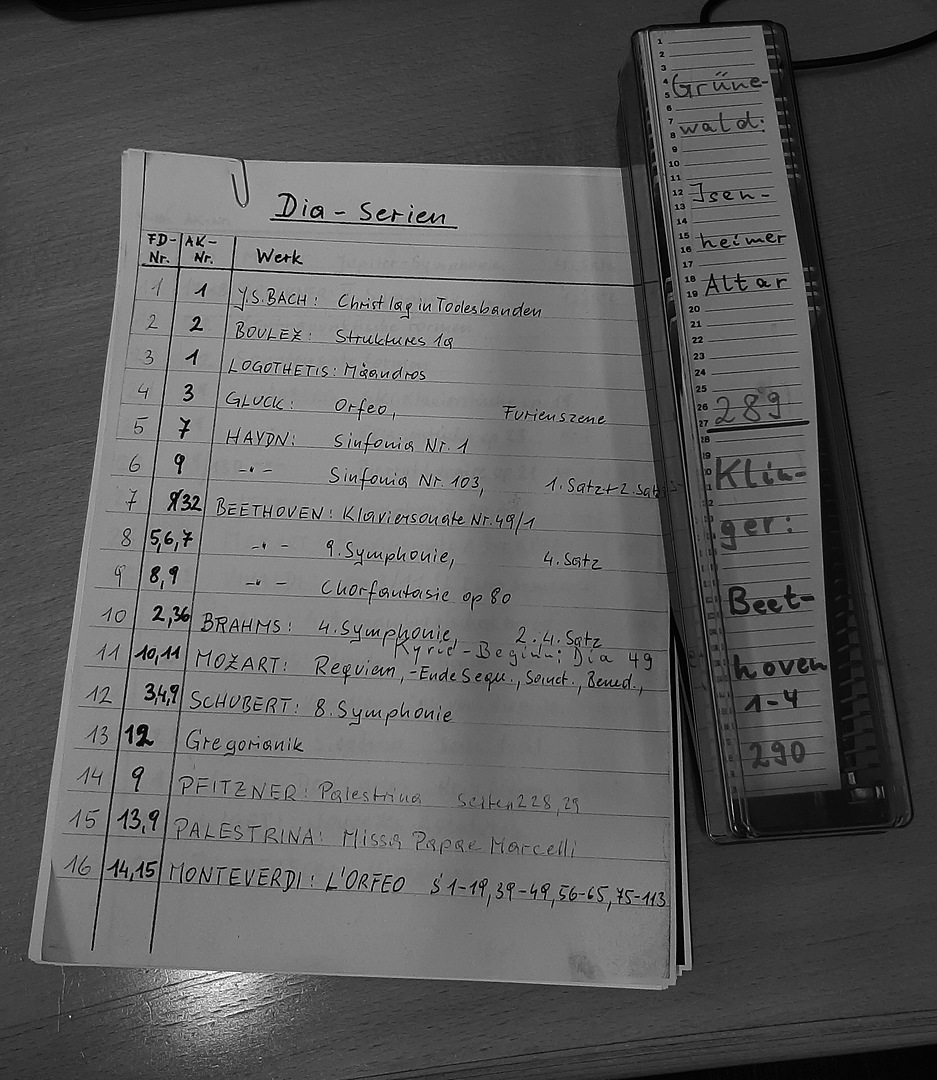 Dia - Serien
FD-Nr. AK-Nr. Werk
1 1 J.S. BACH: Christ lag in Todesbanden
2 2 BOULEZ: Struktures 1a
3 1 LOGOTHETIS: Mäandros
4 3 GLUCK: Orfeo, Furienszene
5 7 HAYDN: Sinfonia Nr. 1
6 9 -"- Sinfonia Nr. 103, 1. Satz + 2. Satz
7 9/32 BEETHOVEN: Klaviersonate Nr. 49/1
8 5,6,7 -"- 9. Symphonie, 4. Satz
9 8,9 -"- Chorfantasie op 80
10 2,36 BRAHMS: 4. Symphonie, 2. 4. Satz
Kyrie - Beginn: Dia 49
11 10,11 MOZART: Requiem, -Ende Sequ., Sanct., Bened.,
12 34,9 SCHUBERT: 8. Symphonie
13 12 Gregorianik
14 9 PFITZNER: Palestrina Seiten 228, 29
15 13,9 PALESTRINA: Missa Papae Marcelli
16 14,15 MONTEVERDI: L'ORFEO S 1-19, 39-49, 56-65, 75-113
Grüne-
wald:
Isen-
heimer
Altar
289
Klin-
ger:
Beet-
hoven
1-4
290